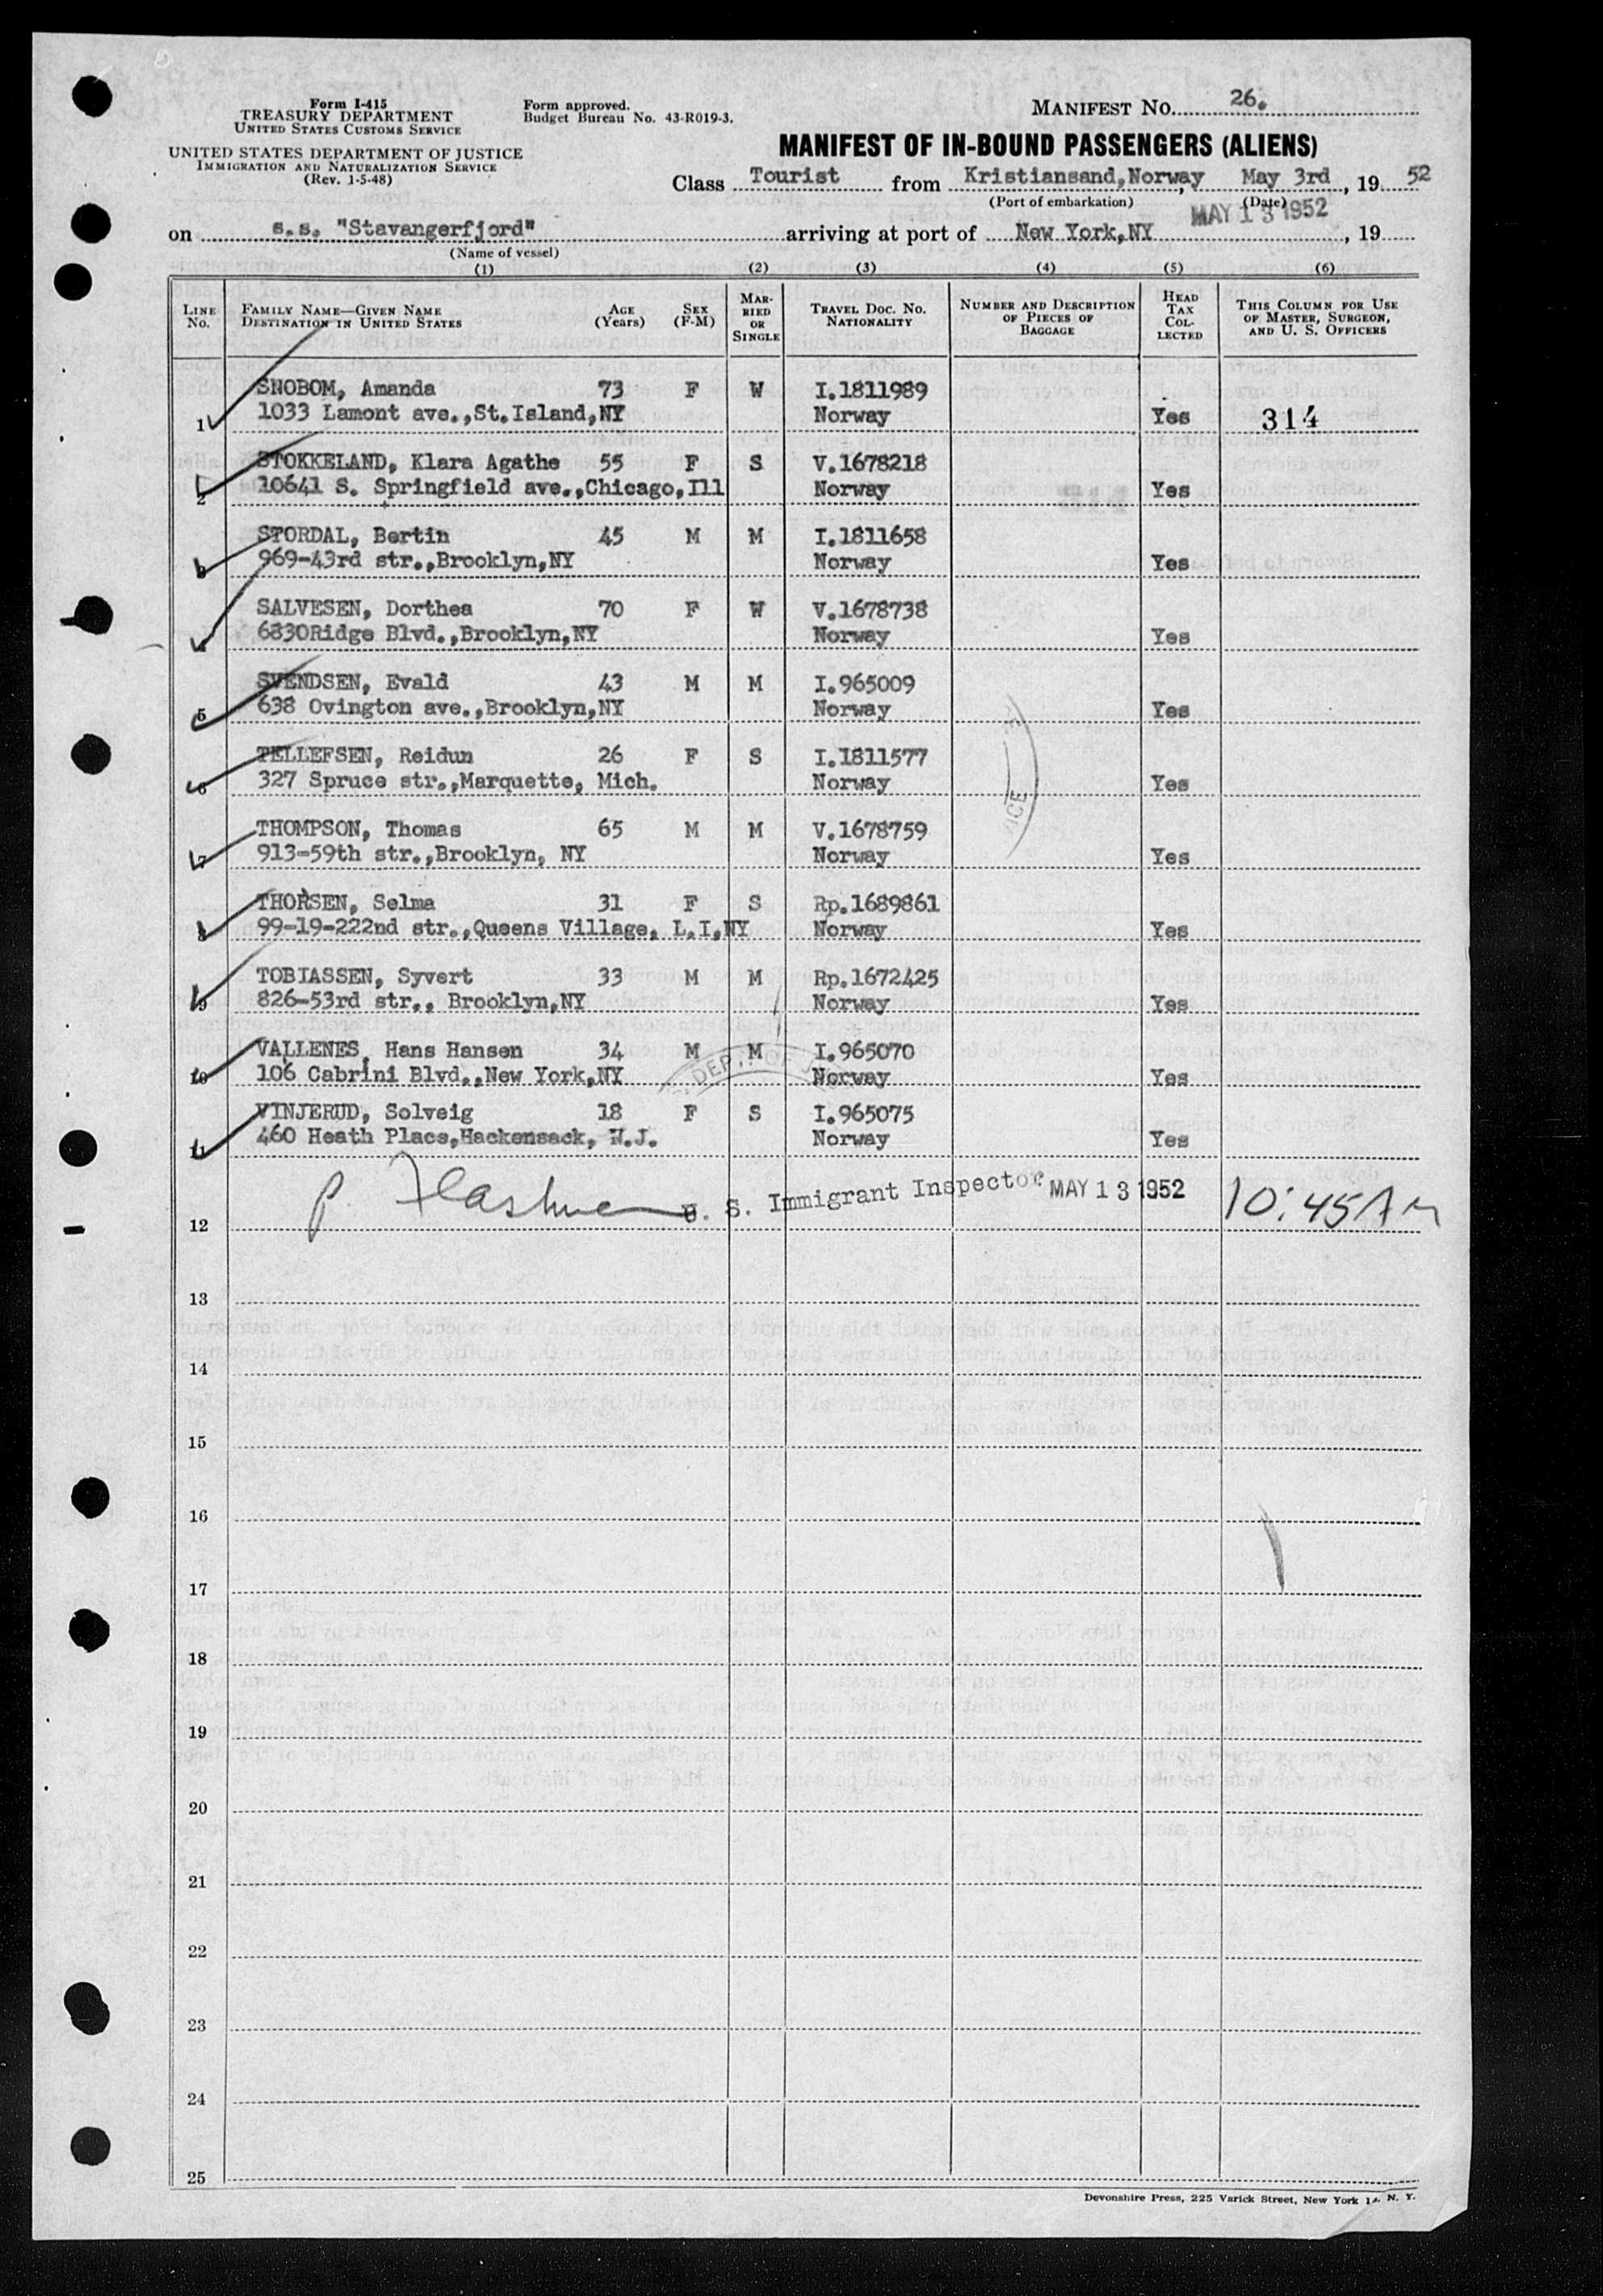 Form I-415
TREASURY DEPARTMENT
UNITED STATES CUSTOMS SERVICE
UNITED STATES DEPARTMENT OF JUSTICE
IMMIGRATION AND NATURALIZATION SERVICE
(Rev. 1-5-48)
Form approved.
Budget Bureau No. 43-R019-3.
MANIFEST NO. 26.
MANIFEST OF IN-BOUND PASSENGERS (ALIENS)
Class Tourist from Kristiansand, Norway, May 3rd, 19 52
(Port of embarkation) (Date)
MAY 13 1952
on s.s. "Stavangerfjord" arriving at port of New York,NY, 19
(Name of vessel)
(1) (2) (3) (4) (5) (6)
LINE No. FAMILY NAME—GIVEN NAME DESTINATION IN UNITED STATES AGE (Years) SEX (F-M) MARRIED OR SINGLE TRAVEL DOC. NO. NATIONALITY NUMBER AND DESCRIPTION OF PIECES OF BAGGAGE HEAD TAX COLLECTED THIS COLUMN FOR USE OF MASTER, SURGEON, AND U. S. OFFICERS
SNOBOM, Amanda 73 F W I.1811989
1 1033 Lamont ave.,St.Island,NY Norway Yes 314
STOKKELAND, Klara Agathe 55 F S V.1678218
2 10641 S. Springfield ave.,Chicago,Ill Norway Yes
STORDAL, Bertin 45 M M I.1811658
3 969-43rd str.,Brooklyn,NY Norway Yes
SALVESEN, Dorthea 70 F W V.1678738
4 6830Ridge Blvd.,Brooklyn,NY Norway Yes
SVENDSEN, Evald 43 M M I.965009
5 638 Ovington ave.,Brooklyn,NY Norway Yes
TELLEFSEN, Reidun 26 F S I.1811577
6 327 Spruce str.,Marquette, Mich. Norway Yes
THOMPSON, Thomas 65 M M V.1678759
7 913-59th str.,Brooklyn, NY Norway Yes
THORSEN, Selma 31 F S Rp.1689861
8 99-19-222nd str.,Queens Village, L.I,NY Norway Yes
TOBIASSEN, Syvert 33 M M Rp.1672425
9 826-53rd str., Brooklyn,NY Norway Yes
VALLENES, Hans Hansen 34 M M I.965070
10 106 Cabrini Blvd.,New York,NY Norway Yes
VINJERUD, Solveig 18 F S I.965075
11 460 Heath Place,Hackensack, N.J. Norway Yes
P. U. S. Immigrant Inspector MAY 13 1952 10:45 AM
12
13
14
15
16
17
18
19
20
21
22
23
24
25
Devonshire Press, 225 Varick Street, New York 14, N. Y.